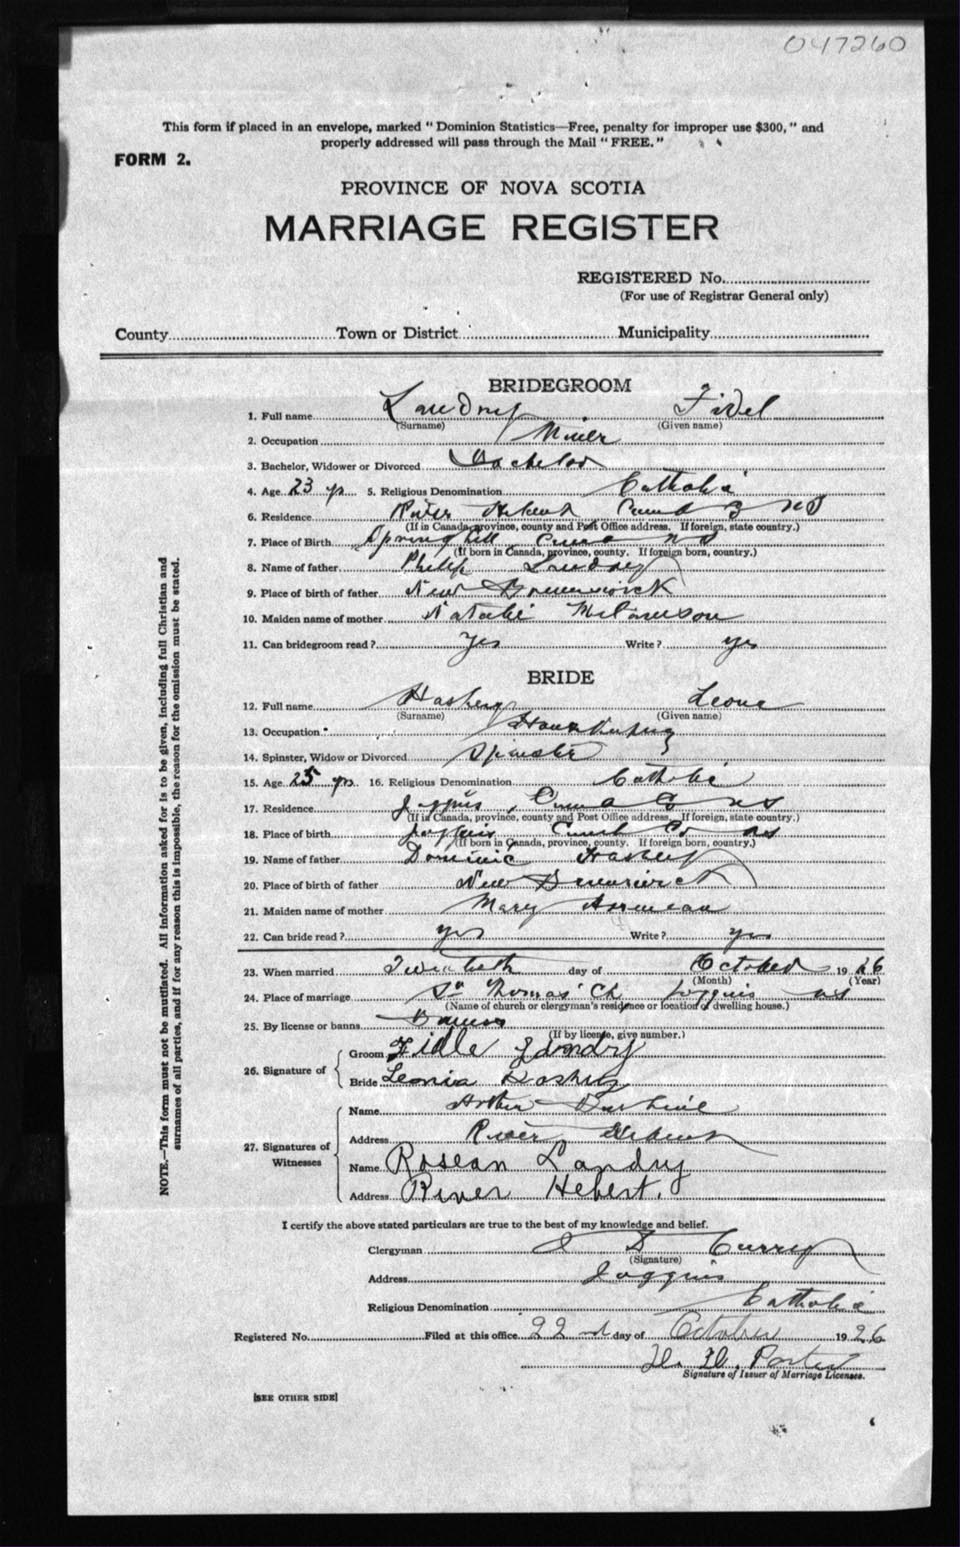 047260
This form if placed in an envelope, marked "Dominion Statistics—Free, penalty for improper use $300," and
properly addressed will pass through the Mail "FREE."
FORM 2.
PROVINCE OF NOVA SCOTIA
MARRIAGE REGISTER
REGISTERED No.
(For use of Registrar General only)
County Town or District Municipality
BRIDEGROOM
1. Full name Landry Fidel
(Surname) (Given name)
2. Occupation Miner
3. Bachelor, Widower or Divorced Bachelor
4. Age 23 yrs 5. Religious Denomination Catholic
6. Residence River Hebert Cumb Co NS
(If in Canada, province, county and Post Office address. If foreign, state country.)
7. Place of Birth Springhill NS
(If born in Canada, province, county. If foreign born, country.)
8. Name of father Philip Landry
9. Place of birth of father New Brunswick
10. Maiden name of mother Natalie
11. Can bridegroom read? Yes Write? yes
BRIDE
12. Full name Hashey Leone
(Surname) (Given name)
13. Occupation
14. Spinster, Widow or Divorced Spinster
15. Age 25 yrs 16. Religious Denomination Catholic
17. Residence Joggins, Co NS
(If in Canada, province, county and Post Office address. If foreign, state country.)
18. Place of birth Joggins Cumb Co NS
(If born in Canada, province, county. If foreign born, country.)
19. Name of father Dominic Hashey
20. Place of birth of father New Brunswick
21. Maiden name of mother Mary
22. Can bride read? yes Write? yes
23. When married Twentieth day of October 1926
(Month) (Year)
24. Place of marriage St Thomas' Ch Joggins NS
(Name of church or clergyman's residence or location of dwelling house.)
25. By license or banns Banns
(If by license, give number.)
26. Signature of
Groom Fidle Landry
Bride Leonia Hashey
27. Signatures of Witnesses
Name Arthur
Address River Hebert
Name Rosean Landry
Address River Hebert.
I certify the above stated particulars are true to the best of my knowledge and belief.
Clergyman Currey
(Signature)
Address Joggins
Religious Denomination Catholic
Registered No. Filed at this office 22nd day of October 1926
H. H. Porter
Signature of Issuer of Marriage Licenses.
[SEE OTHER SIDE]
NOTE.—This form must not be mutilated. All information asked for is to be given, including full Christian and
surnames of all parties, and if for any reason this is impossible, the reason for the omission must be stated.